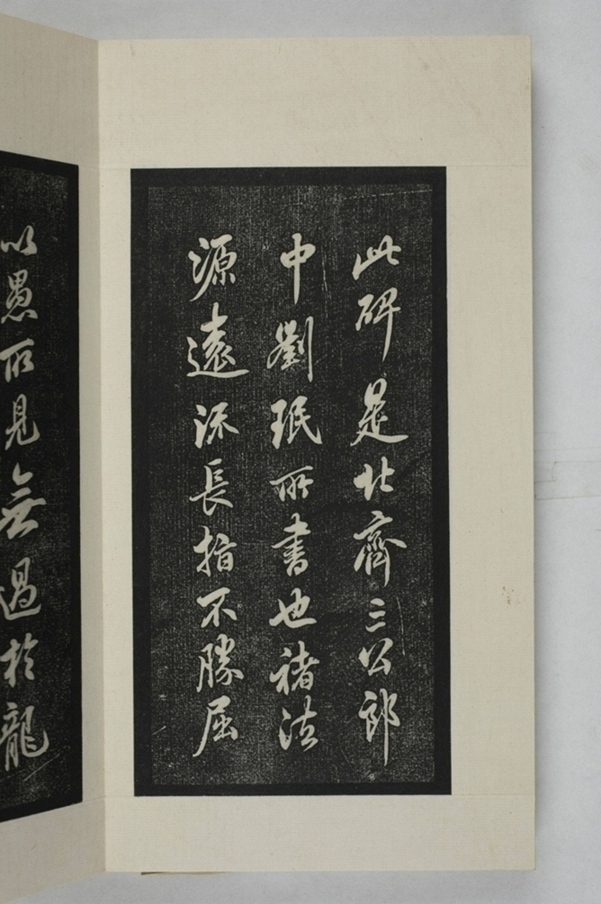 此碑是北齊三公郎
中劉珉所書也褚法
源遠流長指不勝屈
以愚所見無過於龍